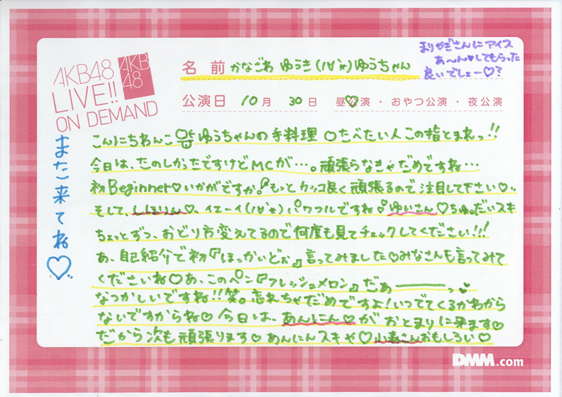 AKB48
LIVE!!
ON DEMAND
AKB
48
名前 かなざわ ゆうき(ﾉ∀`*)ゆうちゃん
まりやぎさんにアイス
あ〜ん♥してもらった
良いでしょー♡?
公演日 10月 30日 昼公演・おやつ公演・夜公演
また来てね♡
こんにちわんこ ゆうちゃんの手料理 たべたい人この指とまれっ!!
今日は、たのしかったですけどMCが…。頑張らなきゃだめですね…
初Beginner♡いかがですか。もっとカッコ良く頑張るので注目して下さい♡
そして、しほりん♡イエーイ(ﾉ∀`*)パワフルですね ゆいさん♡ちゅっだいスキ
ちょっとずつ、おどり方変えてるので何度も見てチェックしてください!!!
あ、自己紹介で初『ほっかいどぉ』言ってみました♡みなさんも言ってみて
くださいね♡あ、このペン『フレッシュメロン』だぁーー。
なつかしいですね!!笑。忘れちゃだめですよ!いつでてくるかわから
ないですからね♡今日は、あんにん♡がおとまりに来ます♡
だから次も頑張ります♡あんにんスキゃ♡小森さんおもしろい♡
DMM.com